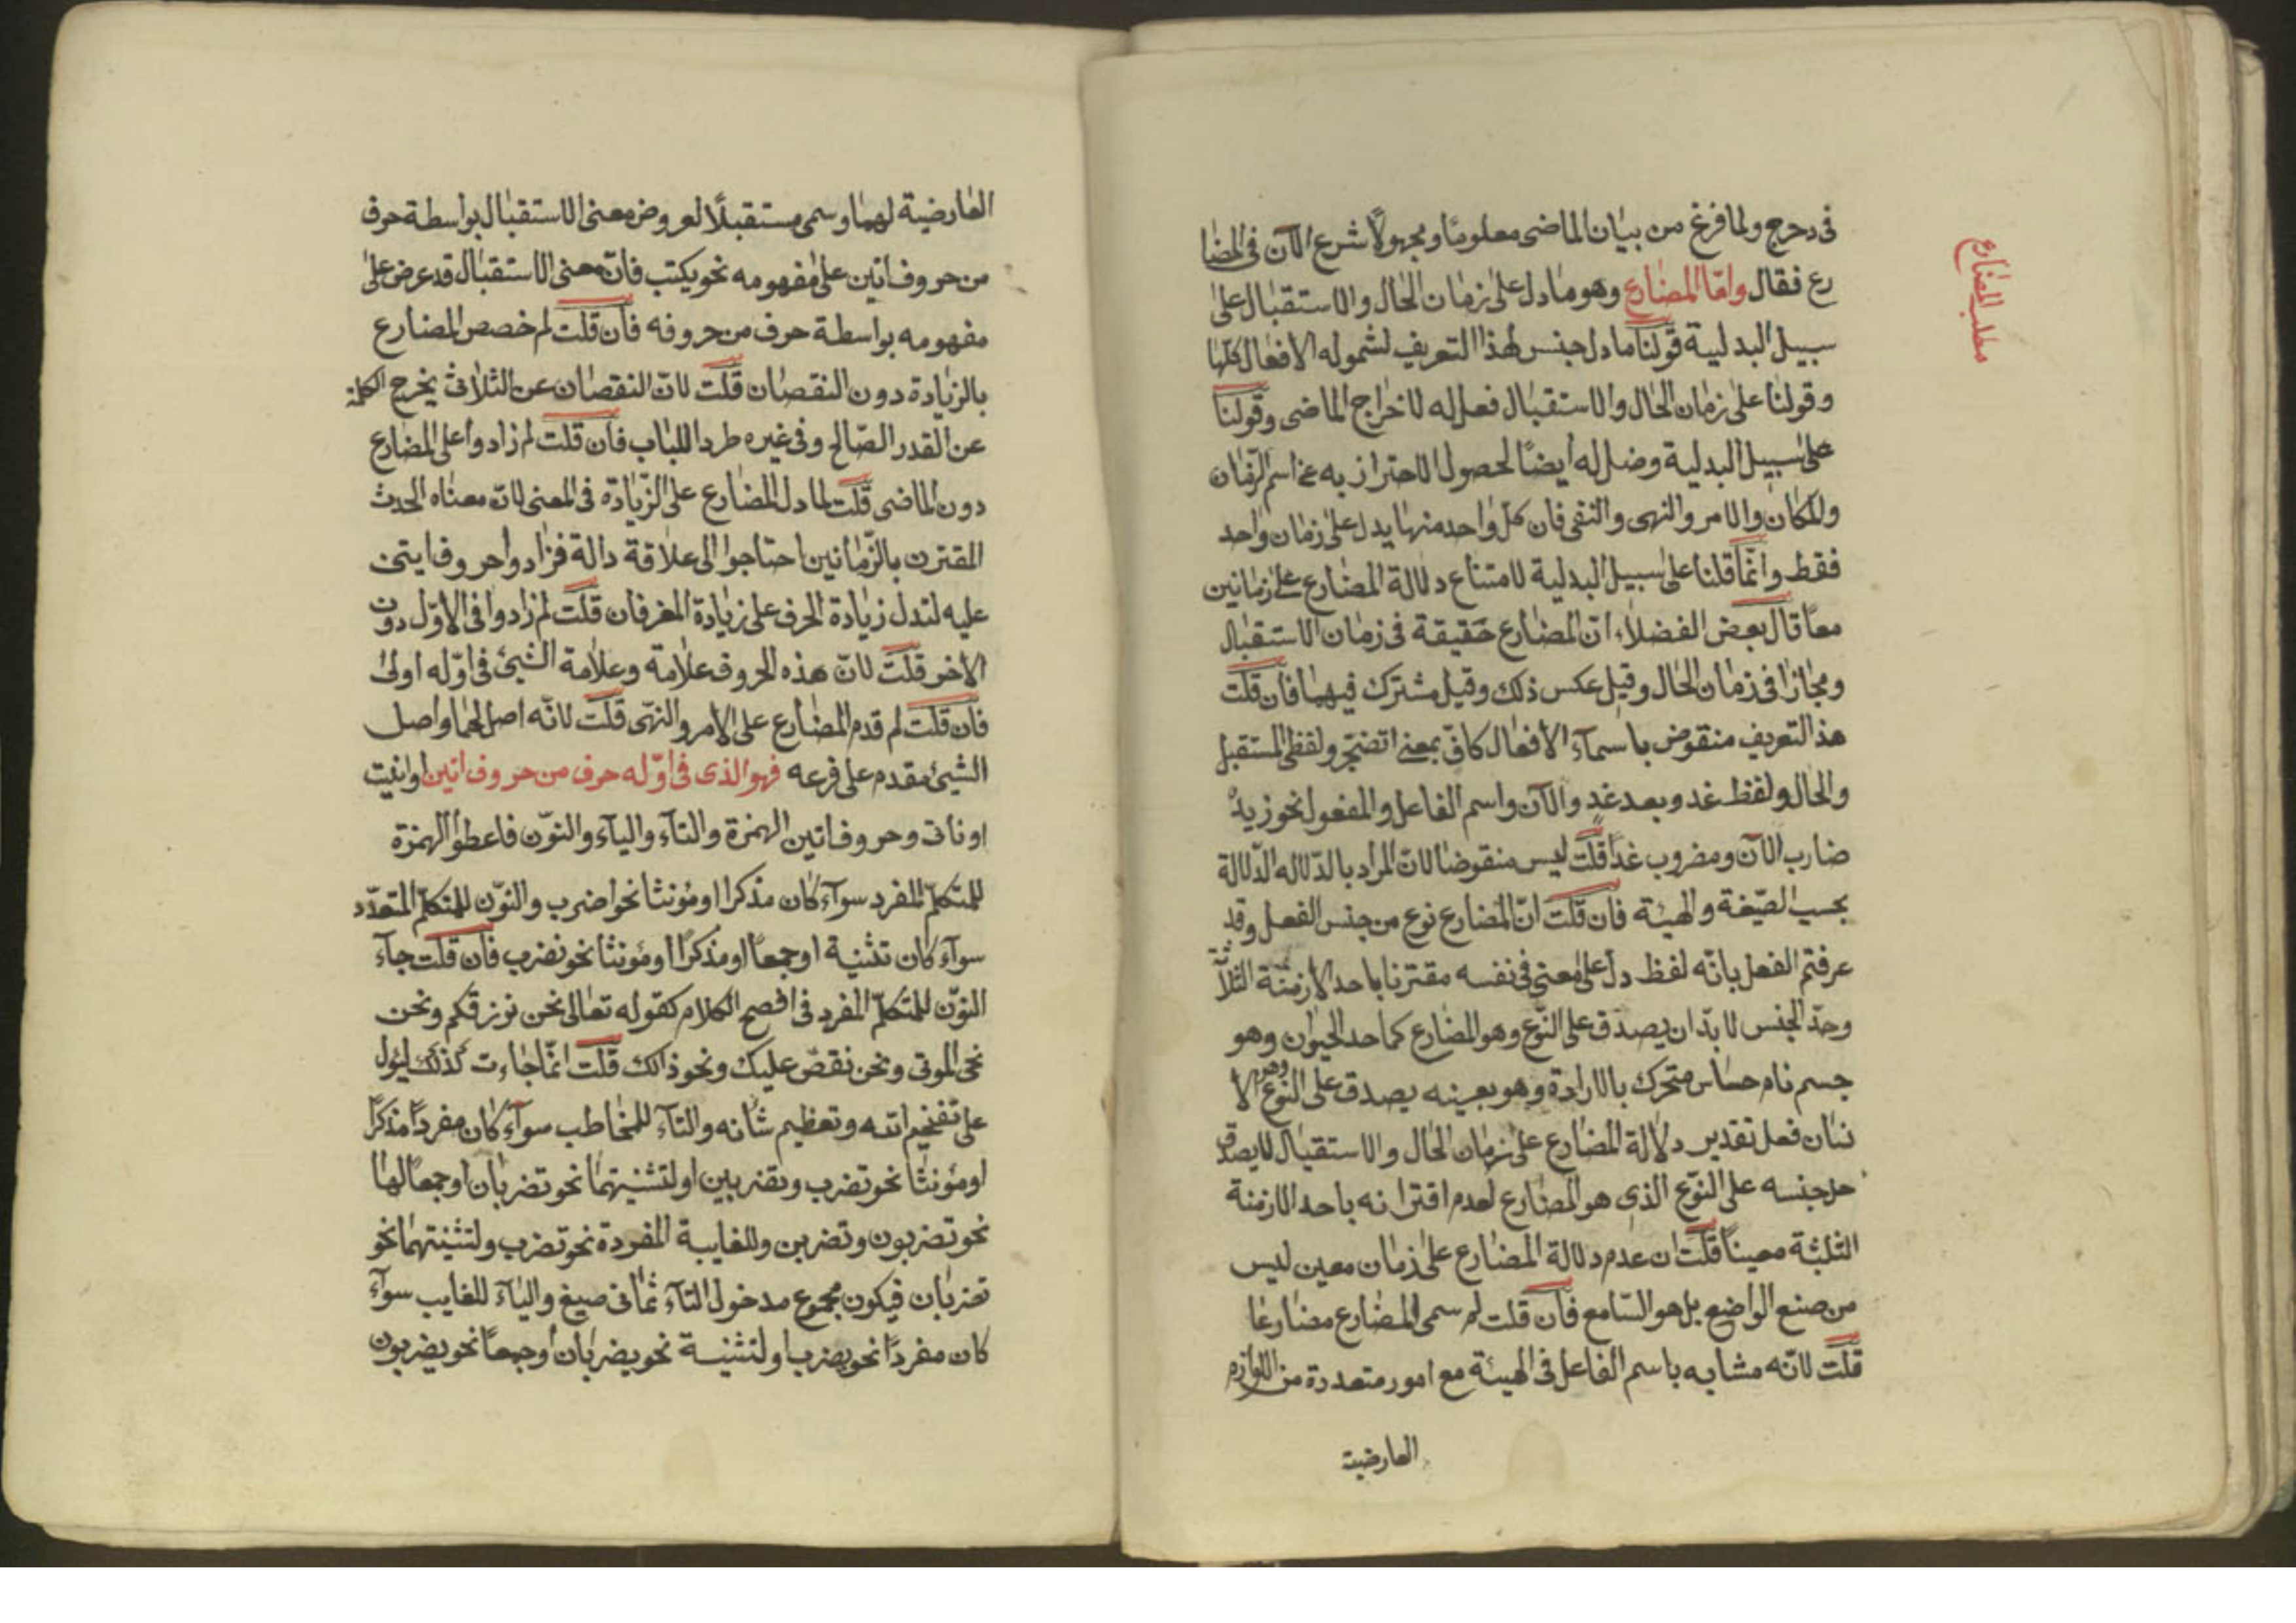 مطلب المضارع
فى دحرج ولما فرغ من بيان الماضى معلومًا ومجهولًا شرع الآن فى المضا
رع فقال وامّا المضارع وهو ما دل على زمان الحال والاستقبال على
سبيل البدلية قولنا ما دل جنس لهذا التعريف لشموله الافعال كلها
وقولنا على زمان الحال والاستقبال فصل له لاخراج الماضى وقولنا
على سبيل البدلية وضل له ايضًا لحصول الاحتراز به عن اسم الزمان
والمكان والامر والنهى والنفى فان كل واحد منها يدل على زمان واحد
فقط وانّما قلنا على سبيل البدلية لامتناع دلالة المضارع على زمانين
معًا قال بعض الفضلاء انّ المضارع حقيقة فى زمان الاستقبال
ومجازا فى زمان الحال وقيل عكس ذلك وقيل مشترك فيهما فان قلت
هذ التعريف منقوض باسمآء الافعال كافّ بمعنى اتضجّر ولفظى المستقبل
والحال ولفظ غد وبعد غدٍ والآن واسم الفاعل والمفعول نحو زيدٌ
ضارب الآن ومضروب غدًا قلت ليس منقوضا لانّ المراد بالدّلاله الدّلالة
بحسب الصّيغة والهيئة فان قلت انّ المضارع نوع من جنس الفعل وقد
عرفتم الفعل بانّه لفظ دل على معنى فى نفسه مقترنا باحد الازمنة الثلاثة
وحدّ الجنس لا بدّ ان يصدق على النّوع وهو المضارع كما حد الحيوان وهو
جسم نام حساس متحرك بالارادة وهو بعينه يصدق على النوع وهو الا
نسان فعل تقدير دلالة المضارع على زمان الحال والاستقبال لا يصدق
حل جنسه على النّوع الذى هو المضارع لعدم اقترانه باحد الازمنة
الثلثة معينًا قلت ان عدم دلالة المضارع على زمان معين ليس
من صنع الواضع بل هو السّامع فان قلت لم سمى المضارع مضارعا
قلت لانّه مشابه باسم الفاعل فى الهيئة مع امور متعددة من اللوازم
العارضية
العارضية لهما وسمى مستقبلًا لعروض معنى الاستقبال بواسطة حرف
من حروف اتين على مفهومه نحو يكتب فانّ معنى الاستقبال قد عرض على
مفهومه بواسطة حرف من حروفه فان قلت لم خصص المضارع
بالزيادة دون النقصان قلت لانّ النقصان عن الثلاثى يخرج الكلمة
عن القدر الصّالح وفى غيره طردا للباب فان قلت لم زادوا على المضارع
دون الماضى قلت لما دل المضارع على الزّيادة فى المعنى لانّ معناه الحدث
المقترن بالزّمانين احتاجوا الى علاقة دالة فزادوا حروف ايتن
عليه لتدل زيادة الحرف على زيادة المعنى فان قلت لم زادوا فى الاوّل دون
الاخر قلت لانّ هذه الحروف علامة وعلامة الشيئ فى اوّله اولى
فان قلت لم قدم المضارع على الامر والنهى قلت لانّه اصل لهما واصل
الشيئ مقدم على فرعه فهو الذى فى اوّله حرف من حروف اتين او انيت
او نأتى وحروف اتين الهمزة والتآء واليآء والنوّن فاعطوا الهمزة
للمتكلّم المفرد سوآء كان مذكرا او مؤنثا نحو اضرب والنوّن للمتكلّم المتعدّد
سوآء كان تثنية او جمعًا او مذكرًا او مؤنثا نحو نضرب فان قلت جآء
النوّن للمتكلّم المفرد فى افصح الكلام كقوله تعالى نحن نرزقكم ونحن
نحى الموتى ونحن نقصّ عليك ونحو ذالك قلت انّما جاءت كذلك ليئول
على تفخيم الله وتعظيم شانه والتآء للمخاطب سوآء كان مفردًا مذكرًا
او مؤنثا نحو تضرب وتضربين او لتثنيتهما نحو تضربان او جمعًا لهما
نحو تضربون وتضربن وللغايبة المفردة نحو تضرب ولتثنيتهما نحو
تضربان فيكون مجموع مدخول التآء ثمانى صيغ واليآء للغايب سوآء
كان مفردًا نحو يضرب او لتثنية نحو يضربان او جمعًا نحو يضربون